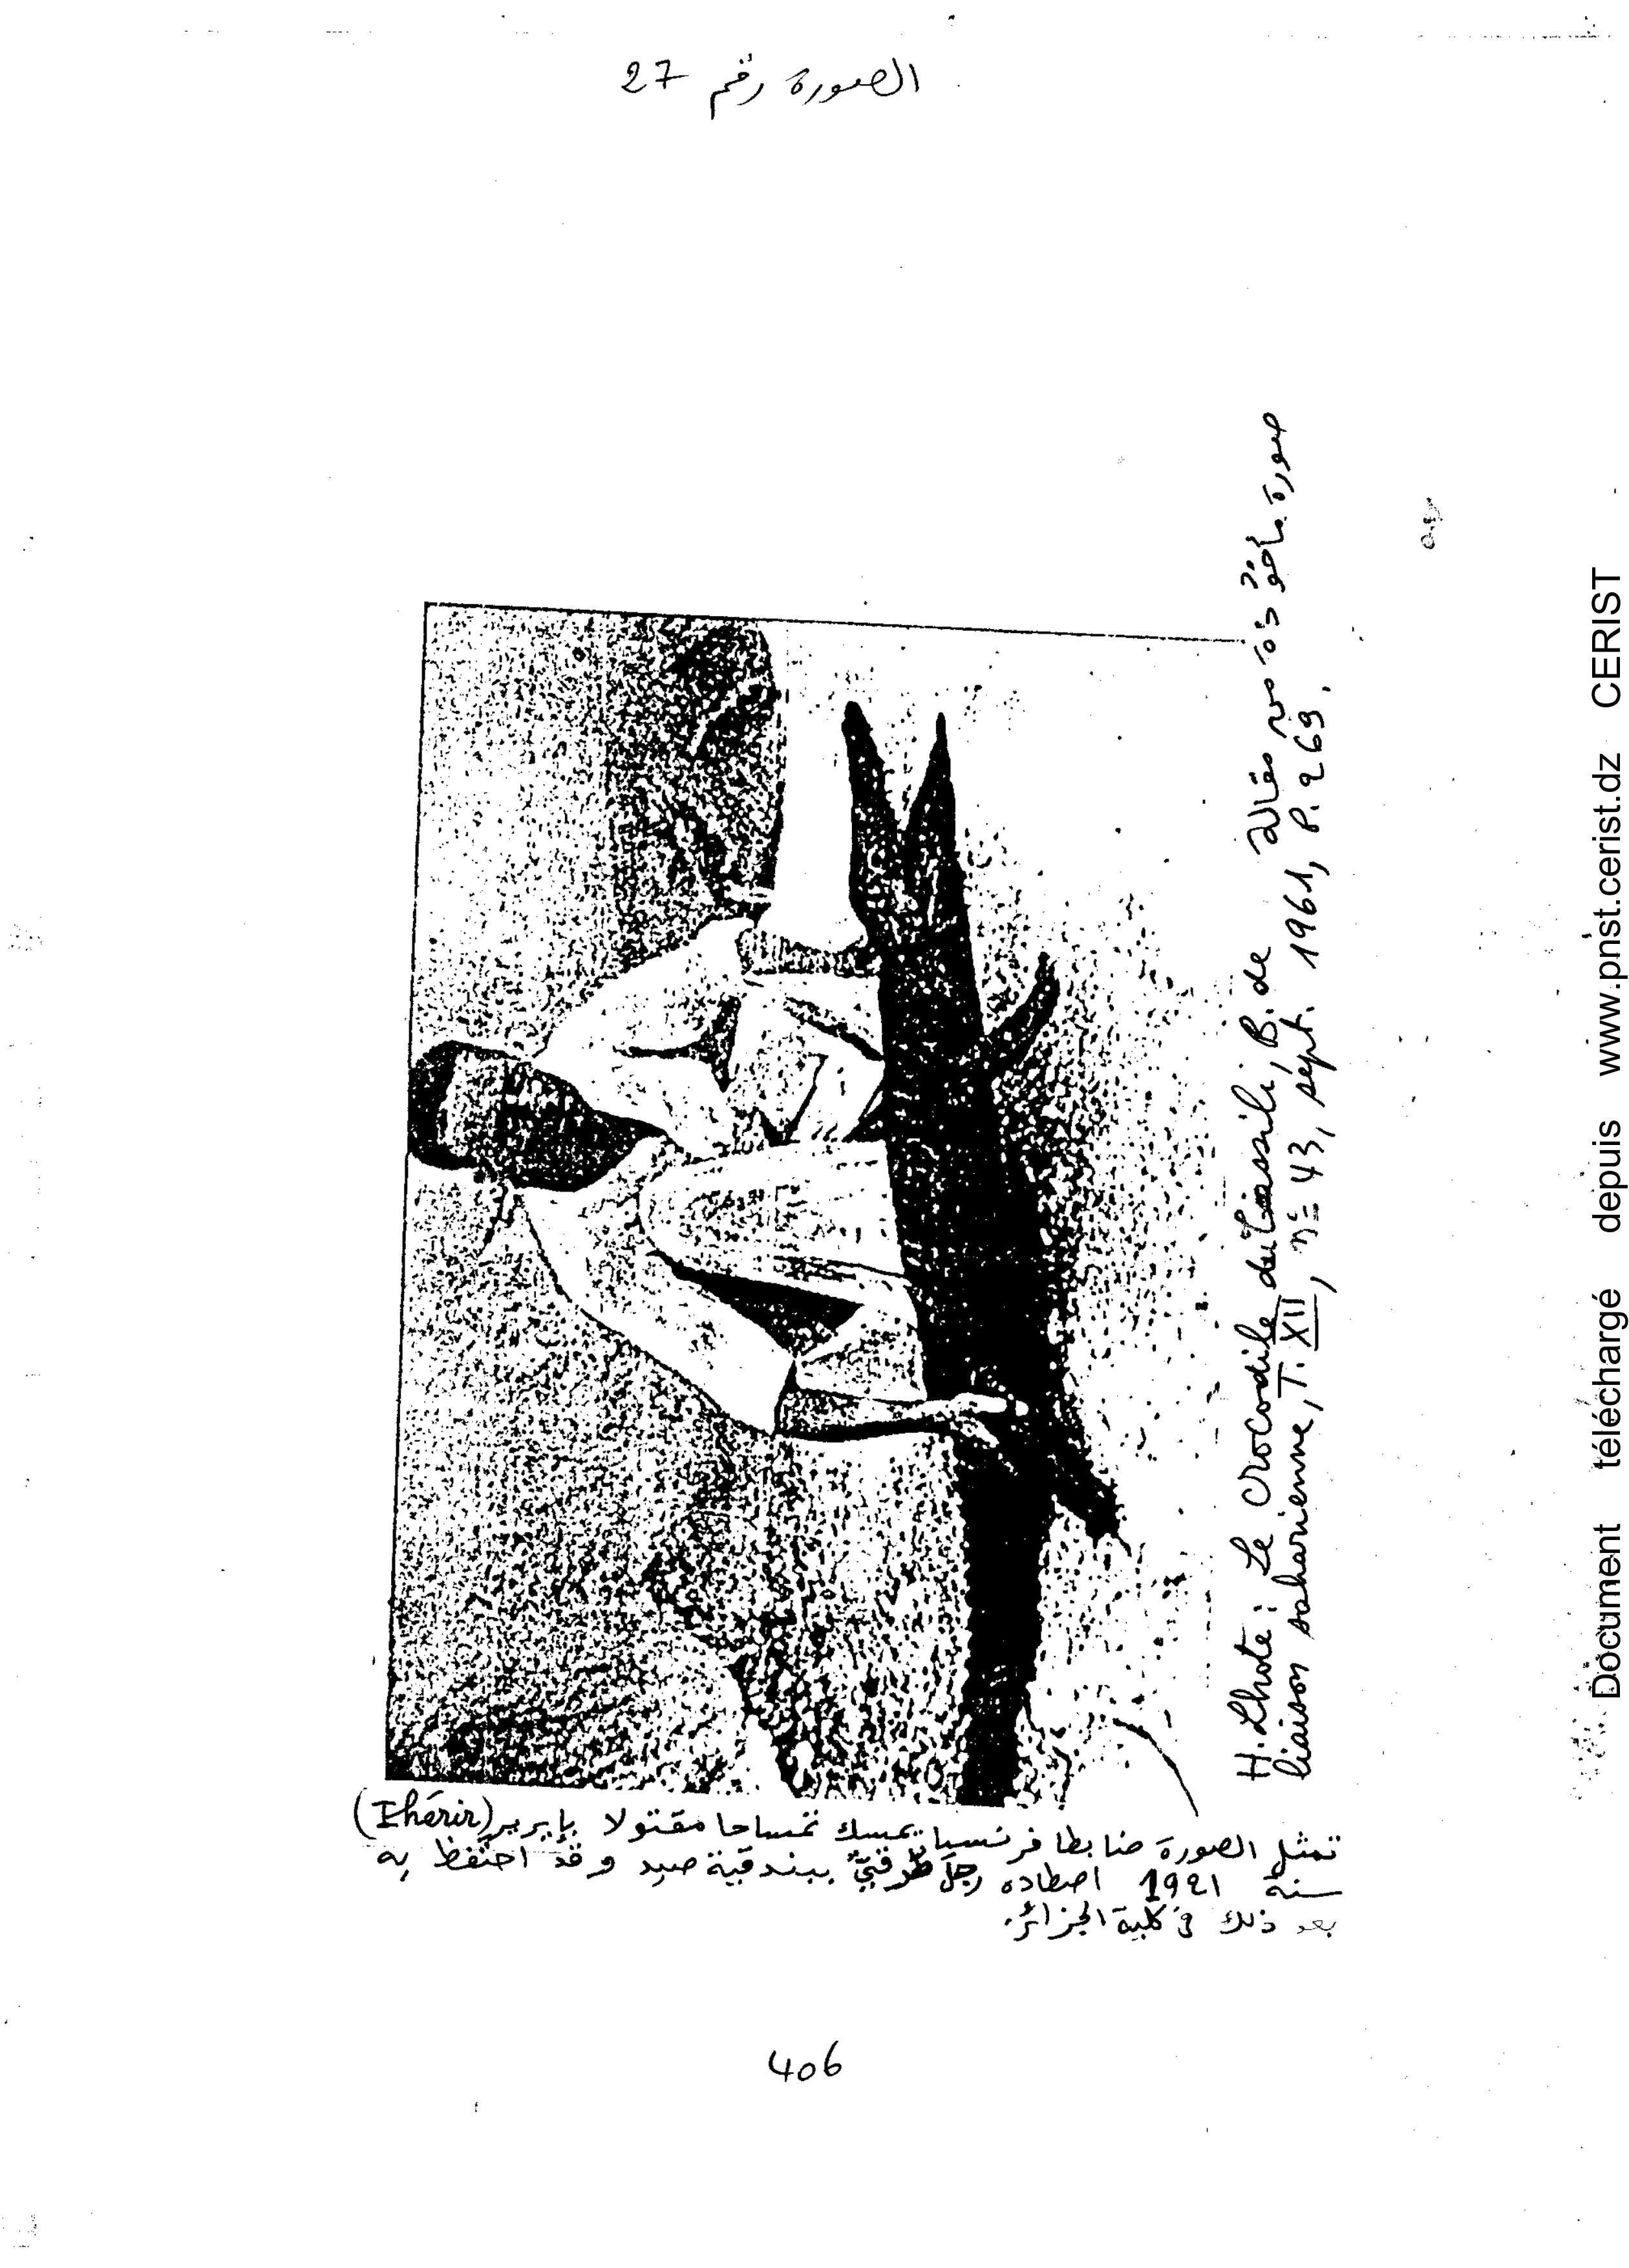 الصورة رقم 27
صورة مأخوذة من مقال
H. Lhote : Le crocodile du Tassili, B. de
liaison saharienne, T. XII, n° 43, sept. 1961, P. 269.
تمثل الصورة ضابطا فرنسيا يمسك تمساحا مقتولا بإيرير (Ihérir)
سنة 1921 اصطاده رجل طرقيّ ببندقية صيد و قد احتفظ به
بعد ذلك في كلية الجزائر.
406
Document téléchargé depuis www.pnst.cerist.dz CERIST